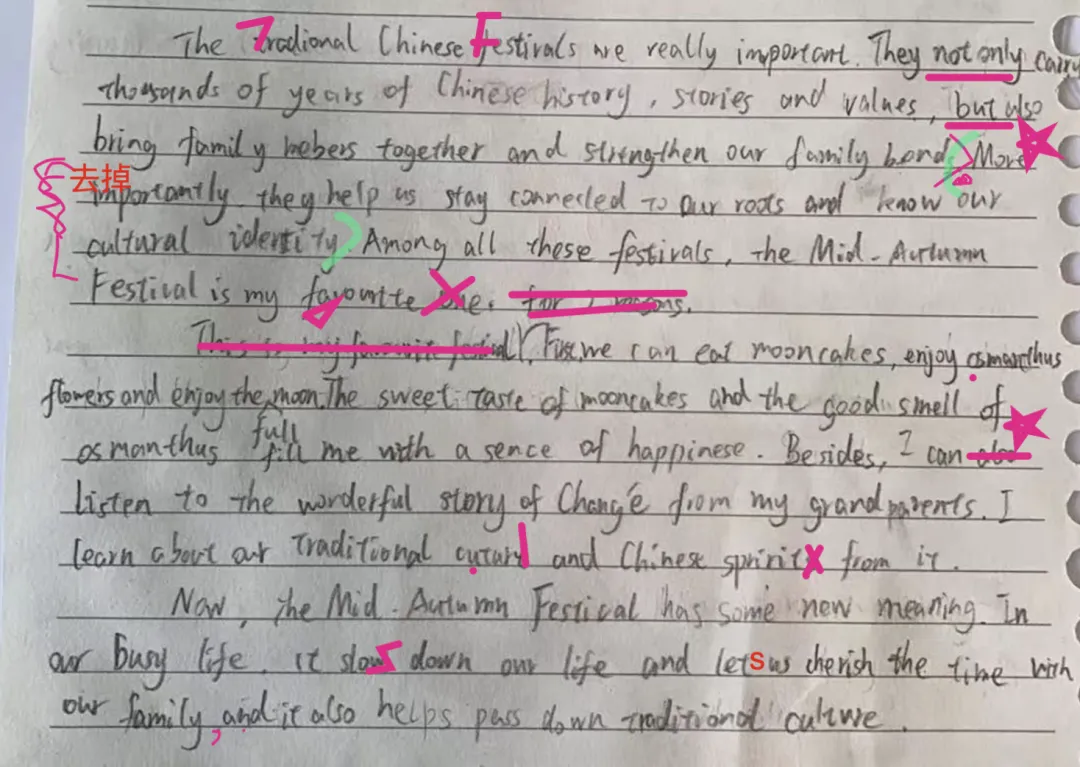 The Tradional Chinese Festivals are really important. They not only carry
thousands of years of Chinese history, stories and values, but also
bring family mebers together and strengthen our family bond. More
去掉
importantly they help us stay connected to our roots and know our
cultural identity. Among all these festivals, the Mid-Autumn
Festival is my favourite one. for reasons.
This is my favourite festival, First, we can eat mooncakes, enjoy osmanthus
flowers and enjoy the moon. The sweet taste of mooncakes and the good smell of
full
osmanthus fill me with a sence of happinese. Besides, I can also
listen to the wonderful story of Chang'e from my grandparents. I
learn about our traditional cuturl and Chinese spirit from it.
Now, the Mid-Autumn Festival has some new meaning. In
our busy life, it slows down our life and lets us cherish the time with
our family, and it also helps pass down traditional culture.